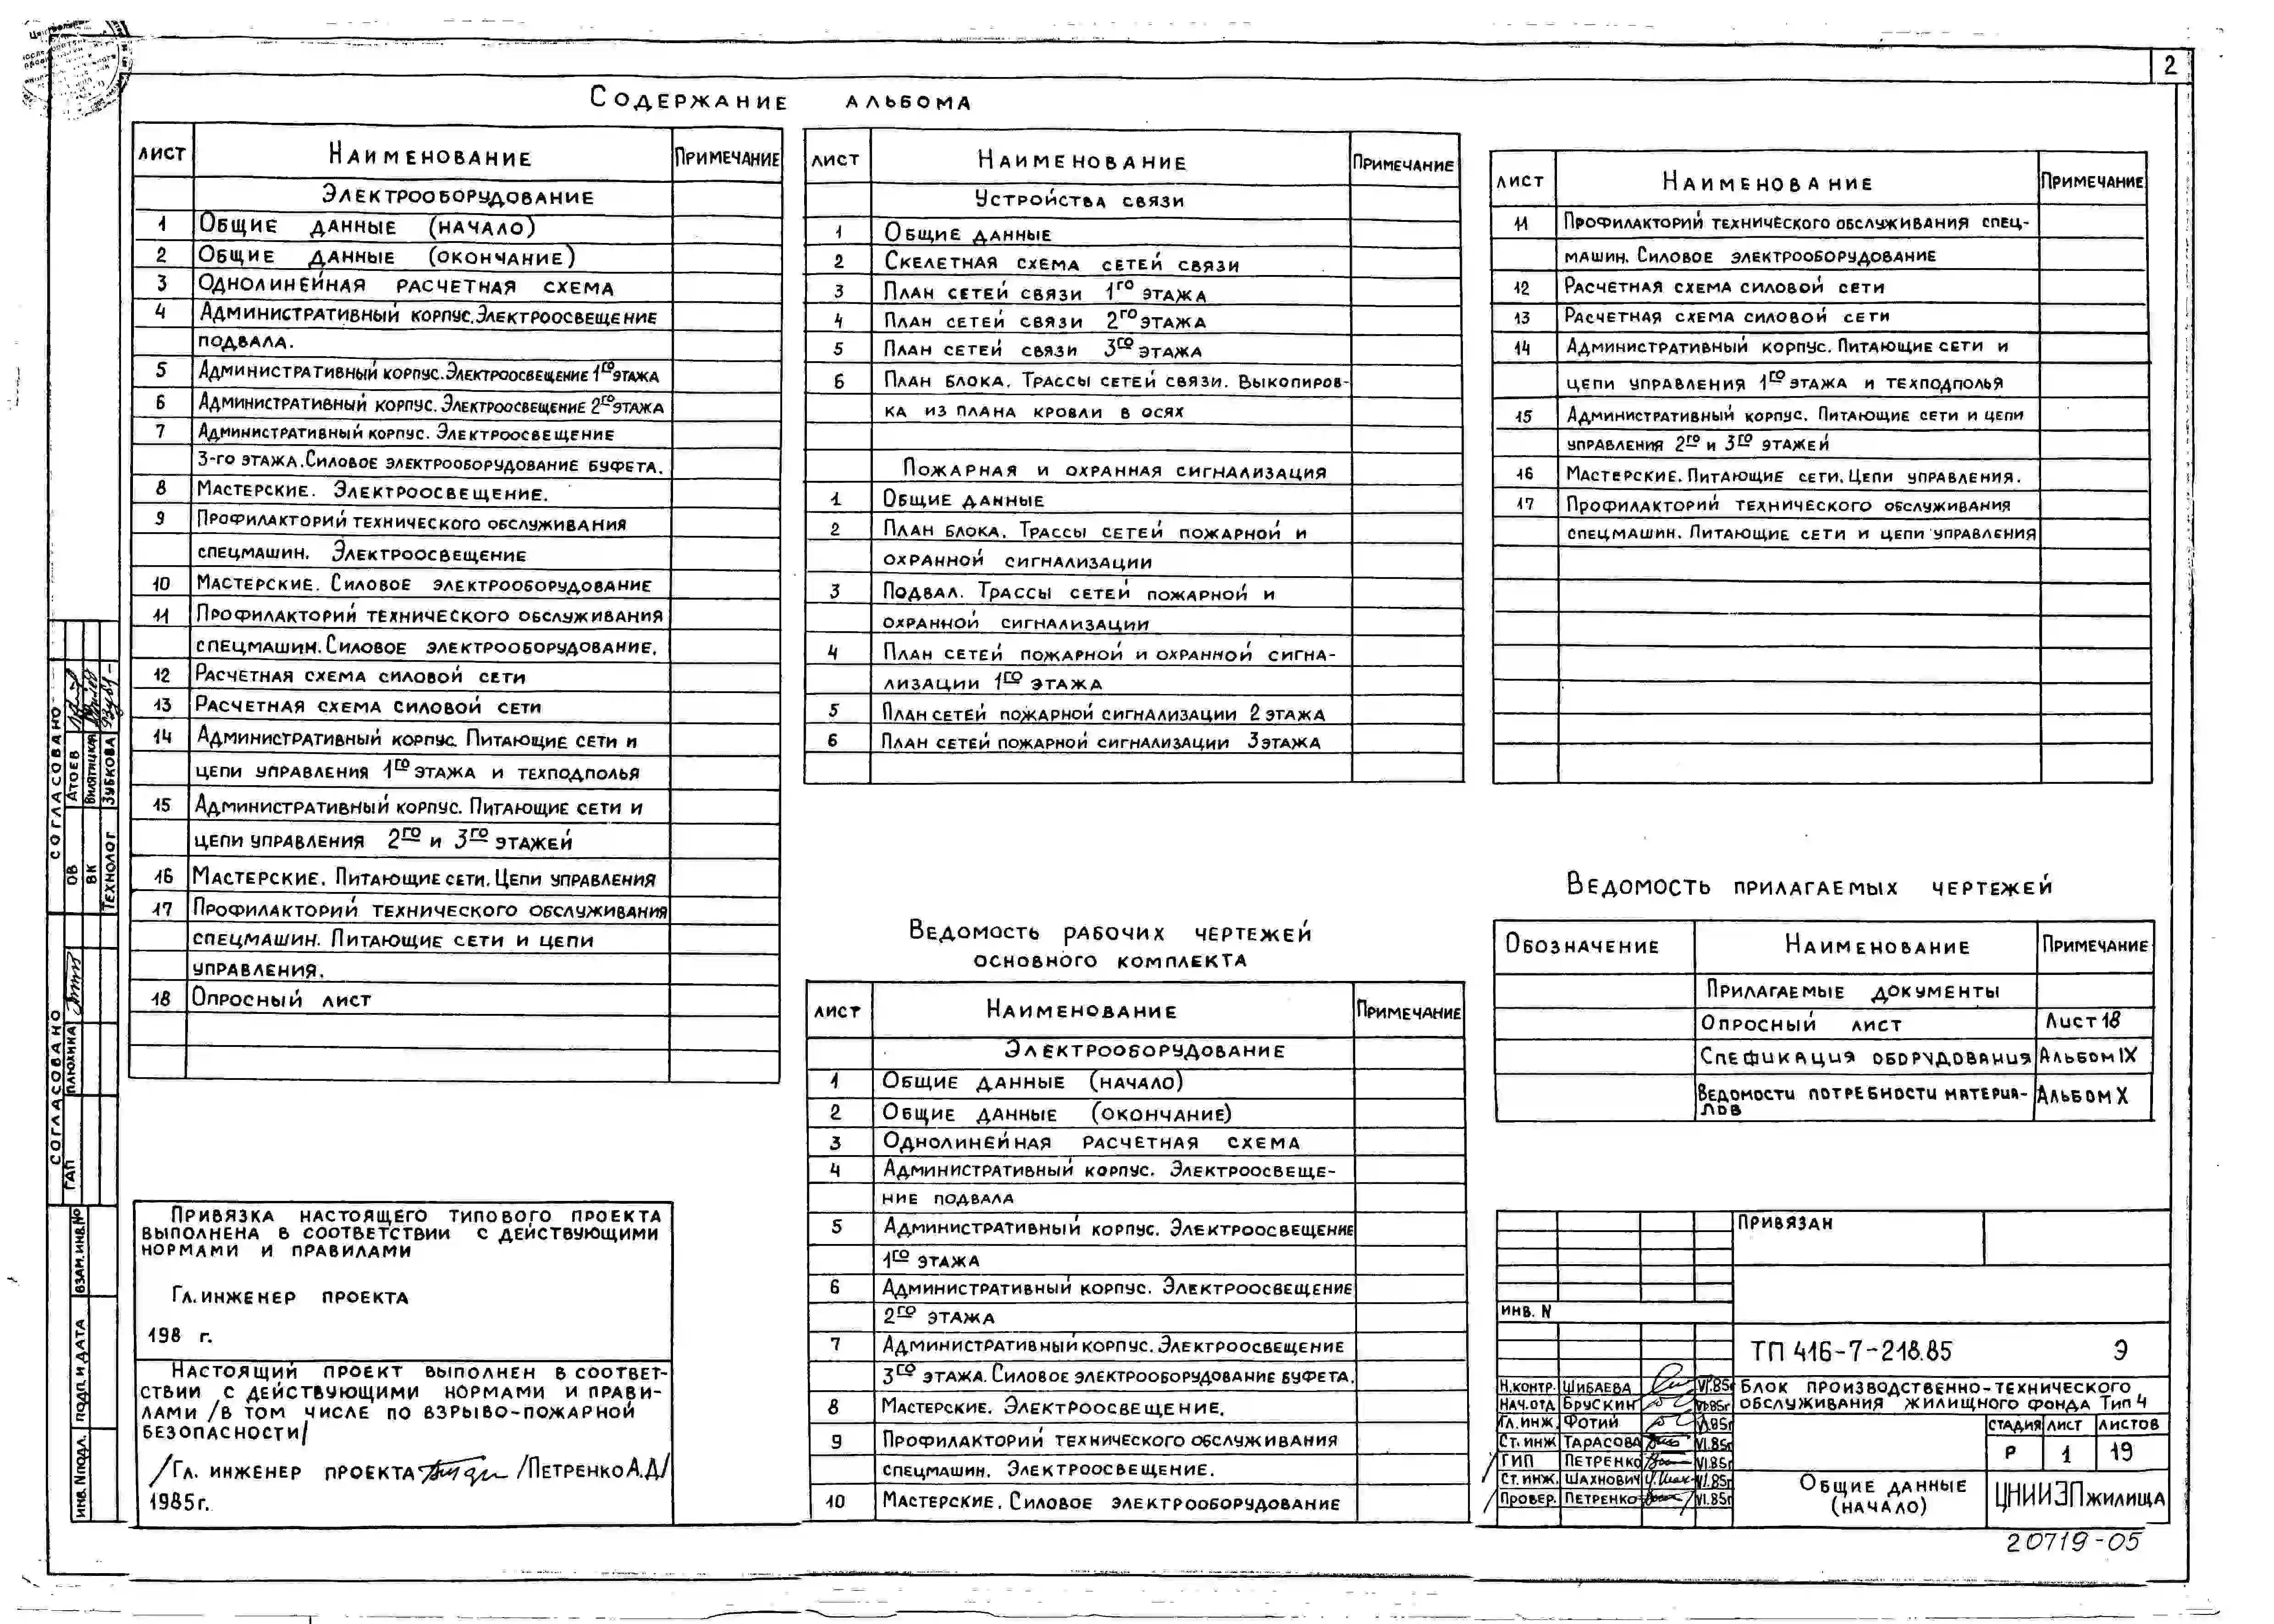 2
Содержание альбома
Лист Наименование Примечание
Электрооборудование
1 Общие данные (начало)
2 Общие данные (окончание)
3 Однолинейная расчетная схема
4 Административный корпус. Электроосвещение
подвала.
5 Административный корпус. Электроосвещение 1го этажа
6 Административный корпус. Электроосвещение 2го этажа
7 Административный корпус. Электроосвещение
3-го этажа. Силовое электрооборудование буфета.
8 Мастерские. Электроосвещение.
9 Профилакторий технического обслуживания
спецмашин. Электроосвещение
10 Мастерские. Силовое электрооборудование
11 Профилакторий технического обслуживания
спецмашин. Силовое электрооборудование.
12 Расчетная схема силовой сети
13 Расчетная схема силовой сети
14 Административный корпус. Питающие сети и
цепи управления 1го этажа и техподполья
15 Административный корпус. Питающие сети и
цепи управления 2го и 3го этажей
16 Мастерские. Питающие сети. Цепи управления
17 Профилакторий технического обслуживания
спецмашин. Питающие сети и цепи
управления.
18 Опросный лист
Лист Наименование Примечание
Устройства связи
1 Общие данные
2 Скелетная схема сетей связи
3 План сетей связи 1го этажа
4 План сетей связи 2го этажа
5 План сетей связи 3го этажа
6 План блока. Трассы сетей связи. Выкопиров-
ка из плана кровли в осях
Пожарная и охранная сигнализация
1 Общие данные
2 План блока. Трассы сетей пожарной и
охранной сигнализации
3 Подвал. Трассы сетей пожарной и
охранной сигнализации
4 План сетей пожарной и охранной сигна-
лизации 1го этажа
5 План сетей пожарной сигнализации 2 этажа
6 План сетей пожарной сигнализации 3 этажа
Лист Наименование Примечание
11 Профилакторий технического обслуживания спец-
машин. Силовое электрооборудование
12 Расчетная схема силовой сети
13 Расчетная схема силовой сети
14 Административный корпус. Питающие сети и
цепи управления 1го этажа и техподполья
15 Административный корпус. Питающие сети и цепи
управления 2го и 3го этажей
16 Мастерские. Питающие сети. Цепи управления.
17 Профилакторий технического обслуживания
спецмашин. Питающие сети и цепи управления
Ведомость рабочих чертежей
основного комплекта
Лист Наименование Примечание
Электрооборудование
1 Общие данные (начало)
2 Общие данные (окончание)
3 Однолинейная расчетная схема
4 Административный корпус. Электроосвеще-
ние подвала
5 Административный корпус. Электроосвещение
1го этажа
6 Административный корпус. Электроосвещение
2го этажа
7 Административный корпус. Электроосвещение
3го этажа. Силовое электрооборудование буфета.
8 Мастерские. Электроосвещение.
9 Профилакторий технического обслуживания
спецмашин. Электроосвещение.
10 Мастерские. Силовое электрооборудование
Ведомость прилагаемых чертежей
Обозначение Наименование Примечание
Прилагаемые документы
Опросный лист Лист 18
Спефикация оборудования Альбом IX
Ведомости потребности материа- Альбом X
лов
Согласовано
ОВ Атоев
ВК
Технолог Зубкова
Согласовано
ГАП Плюхина
Взам. инв. №
Подп. и дата
Инв. № подл.
Привязка настоящего типового проекта
выполнена в соответствии с действующими
нормами и правилами
Гл. инженер проекта
198 г.
Настоящий проект выполнен в соответ-
ствии с действующими нормами и прави-
лами /в том числе по взрыво-пожарной
безопасности/
/Гл. инженер проекта /Петренко А.Д/
1985г.
Привязан
Инв. N
ТП 416-7-218.85 Э
Н.контр. Шибаева VI.85г
Нач.отд Брускин VI.85г
Гл.инж. Фотий VI.85г
Ст.инж Тарасова VI.85г
ГИП Петренко VI.85г
Ст.инж. Шахнович VI.85г
Провер. Петренко VI.85г
Блок производственно-технического
обслуживания жилищного фонда Тип 4
Стадия Лист Листов
Р 1 19
Общие данные
(начало)
ЦНИИЭП жилища
20719-05